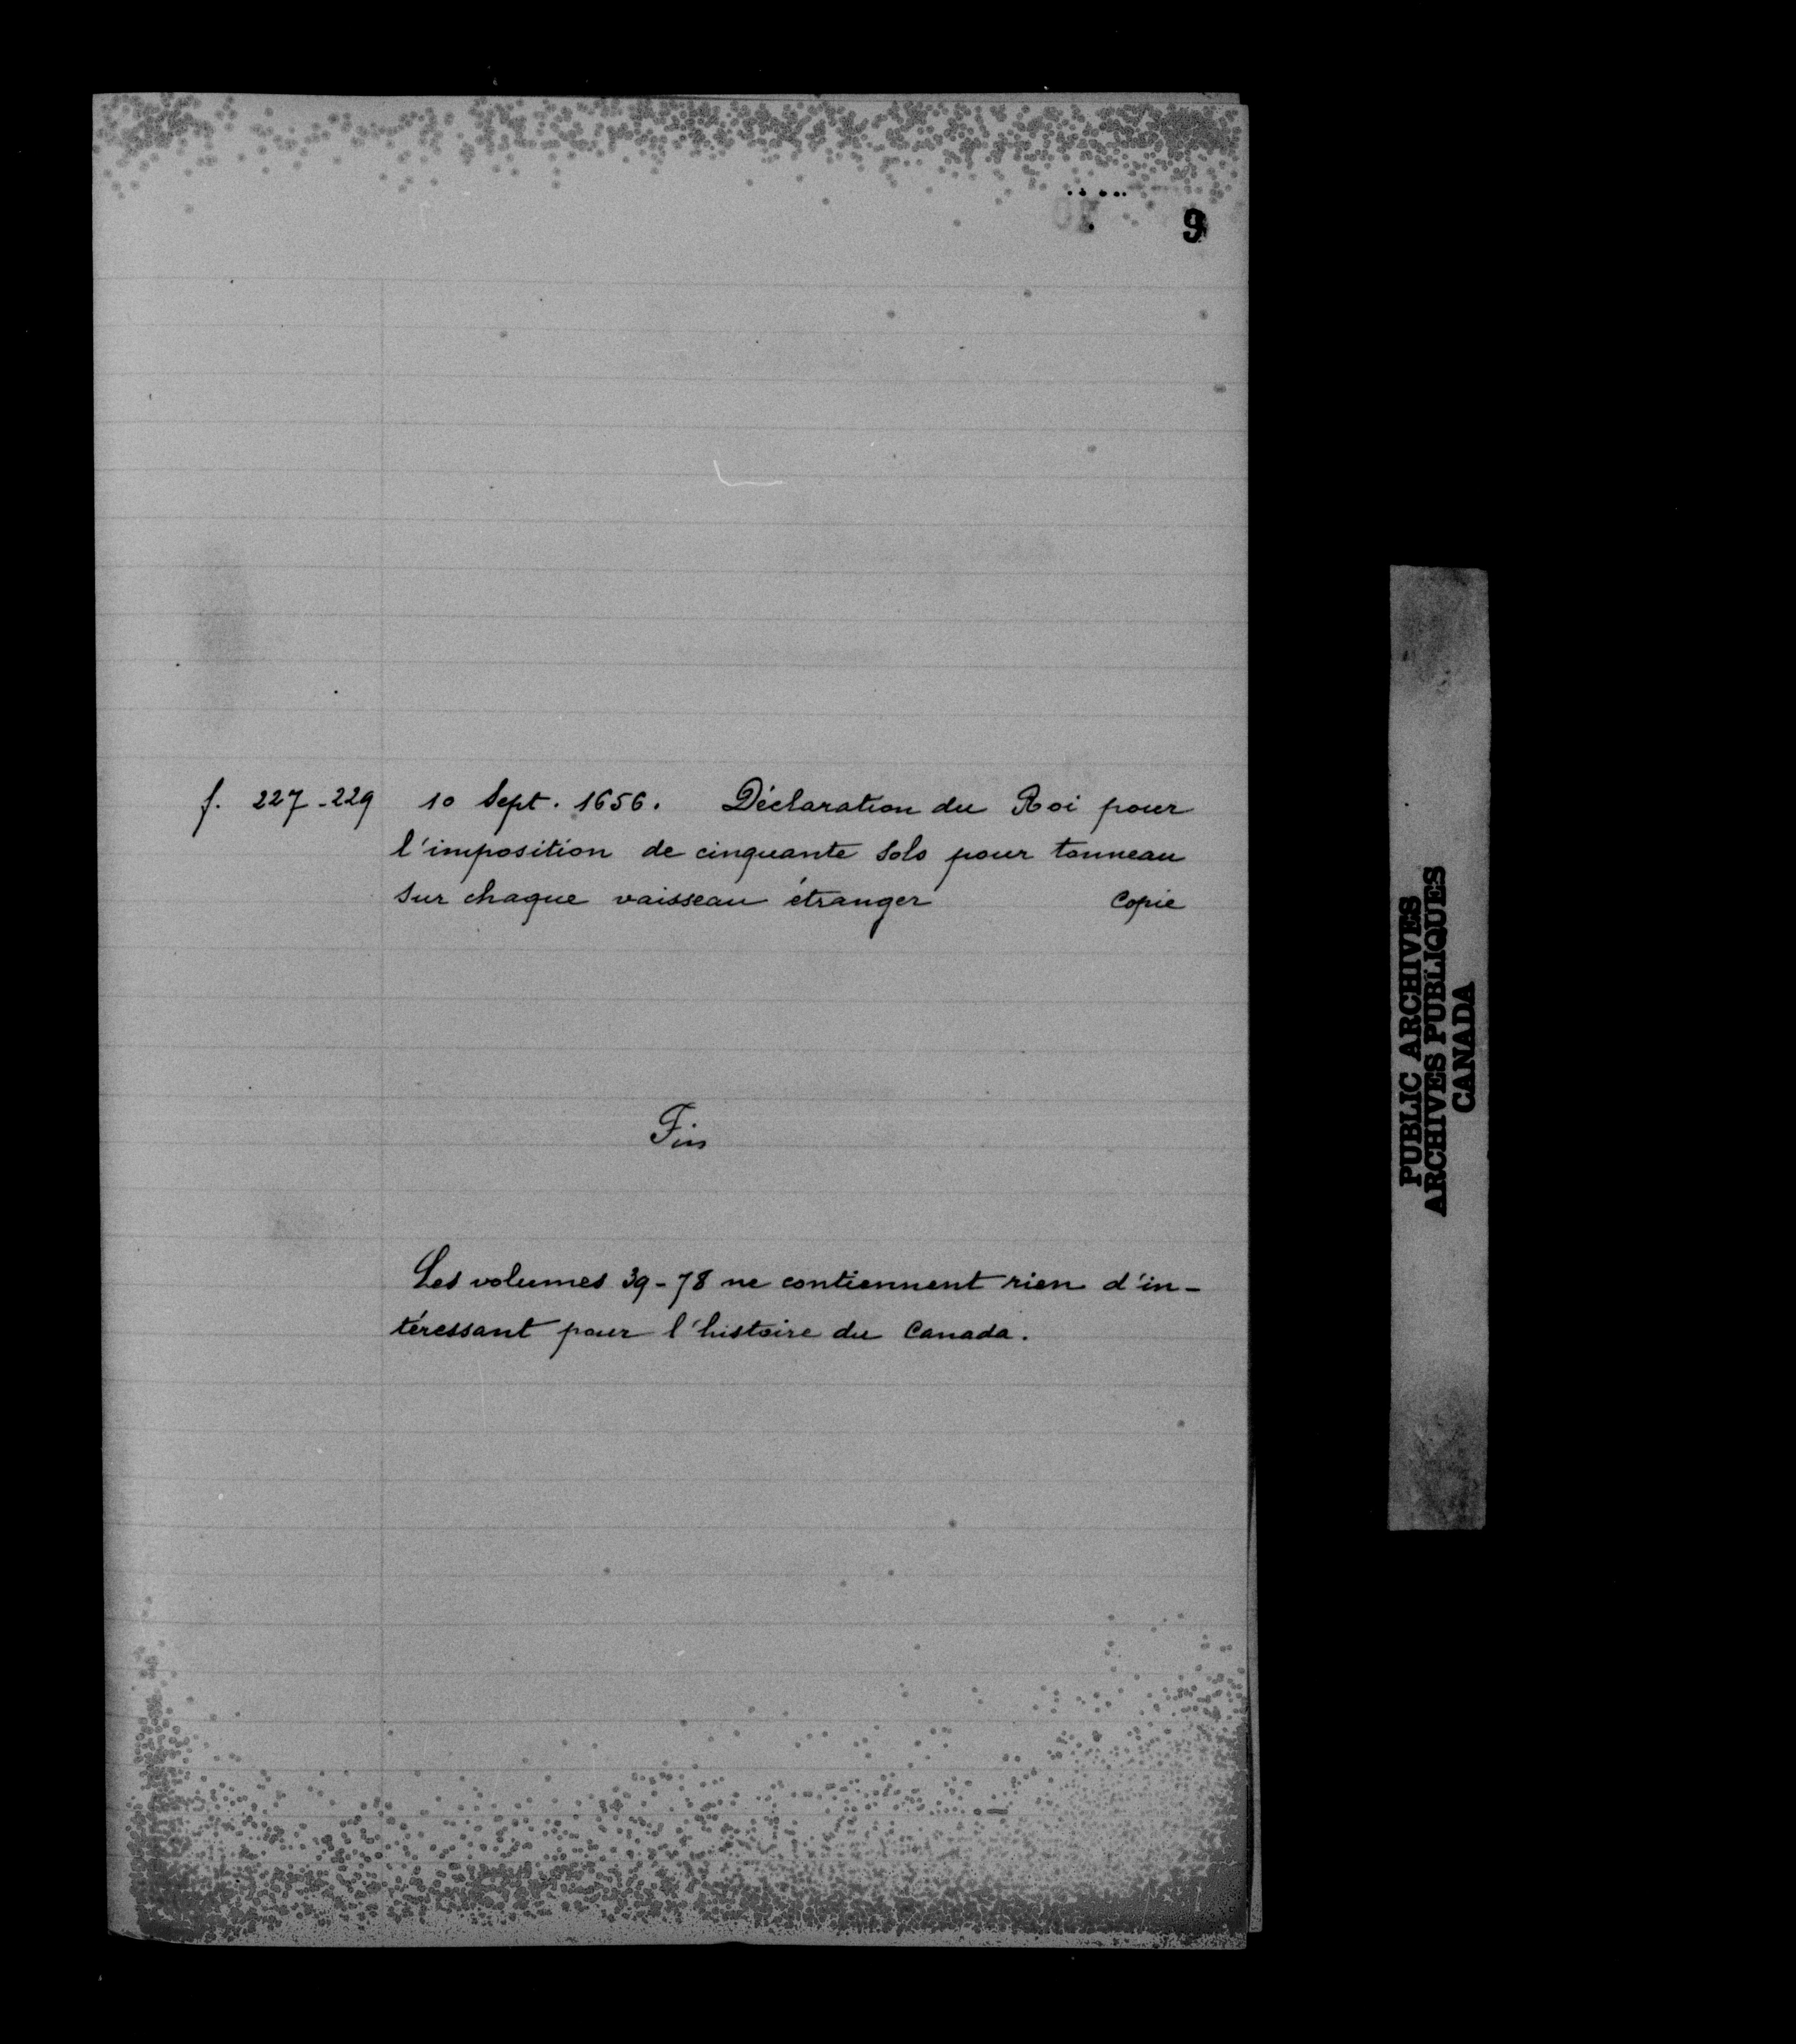 9
f. 227-229 10 Sept. 1656. Déclaration du Roi pour
l'imposition de cinquante sols pour tonneau
sur chaque vaisseau étranger copie
Fin
Les volumes 39-78 ne contiennent rien d'in-
téressant pour l'histoire du Canada.
PUBLIC ARCHIVES
ARCHIVES PUBLIQUES
CANADA